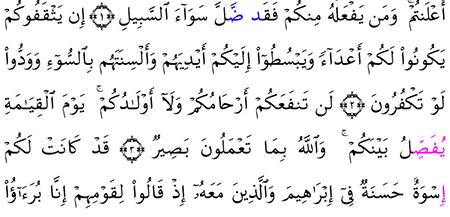 أَعْلَنتُمْ ۚ وَمَن يَفْعَلْهُ مِنكُمْ فَقَد ضَّلَّ سَوَآءَ ٱلسَّبِيلِ ﴿١﴾ إِن يَثْقَفُوكُمْ
يَكُونُوا۟ لَكُمْ أَعْدَآءً وَيَبْسُطُوٓا۟ إِلَيْكُمْ أَيْدِيَهُمْ وَأَلْسِنَتَهُم بِٱلسُّوٓءِ وَوَدُّوا۟
لَوْ تَكْفُرُونَ ﴿٢﴾ لَن تَنفَعَكُمْ أَرْحَامُكُمْ وَلَآ أَوْلَٰدُكُمْ ۚ يَوْمَ ٱلْقِيَٰمَةِ
يُفَصِّلُ بَيْنَكُمْ ۚ وَٱللَّهُ بِمَا تَعْمَلُونَ بَصِيرٌ ﴿٣﴾ قَدْ كَانَتْ لَكُمْ
إِسْوَةٌ حَسَنَةٌ فِىٓ إِبْرَٰهِيمَ وَٱلَّذِينَ مَعَهُۥٓ إِذْ قَالُوا۟ لِقَوْمِهِمْ إِنَّا بُرَءَٰٓؤُا۟